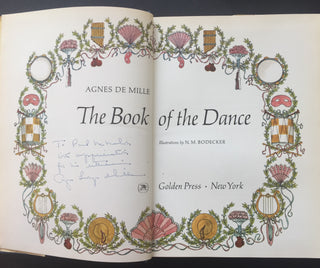 AGNES DE MILLE
The Book of the Dance
Illustrations by N. M. BODECKER
To Paul
with appreciation
of his
Agnes de Mille
Golden Press · New York